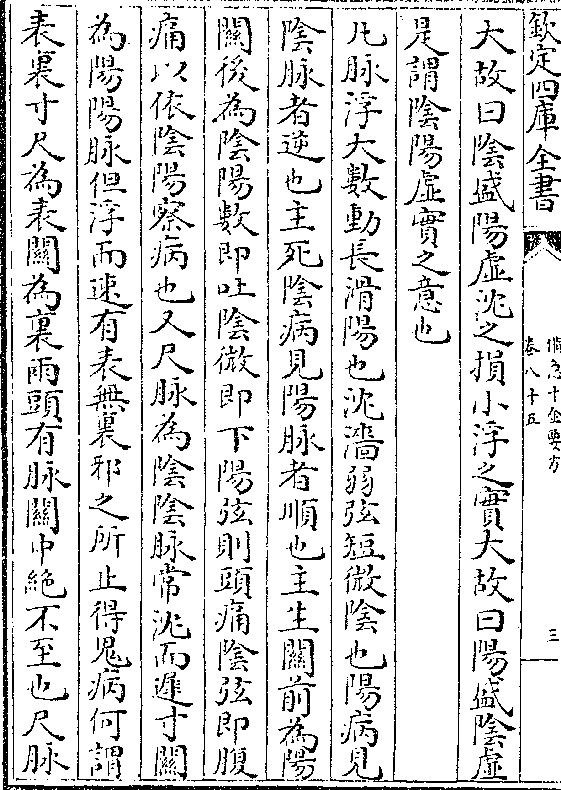 欽定四庫全書
備急千金要方
卷八十五
三
大故曰陰盛陽虛沈之損小浮之實大故曰陽盛陰虛
是謂陰陽虛實之意也
凡脉浮大數動長滑陽也沈濇弱弦短微陰也陽病見
陰脉者逆也主死陰病見陽脉者順也主生關前為陽
關後為陰陽數即吐陰微即下陽弦則頭痛陰弦即腹
痛以依陰陽察病也又尺脉為陰陰脉常沈而遲寸關
為陽陽脉但浮而速有表無裏邪之所止得鬼病何謂
表裏寸尺為表關為裏兩頭有脉關中絶不至也尺脉